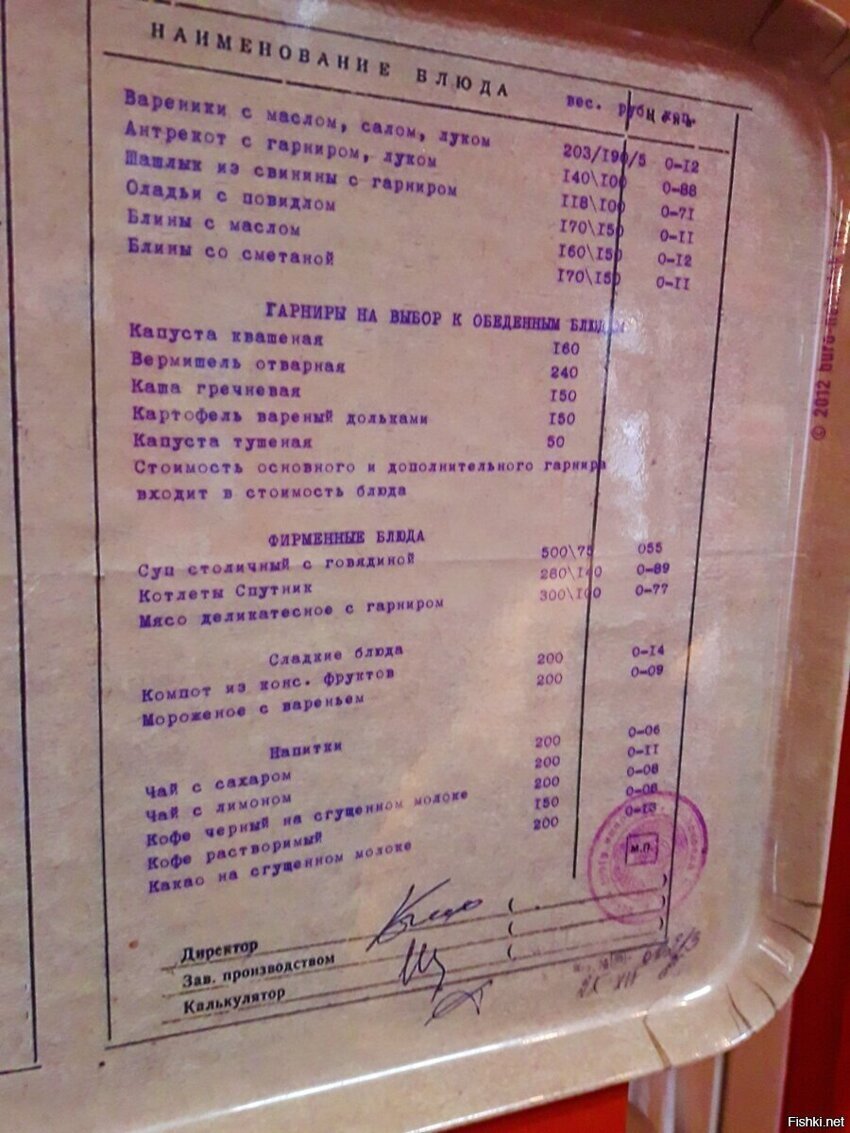 НАИМЕНОВАНИЕ БЛЮДА вес.
Вареники с маслом, салом, луком 203/190/5 0-12
Антрекот с гарниром, луком 140\100 0-88
Шашлык из свинины с гарниром 118\100 0-71
Оладьи с повидлом 170\150 0-11
Блины с маслом 160\150 0-12
Блины со сметаной 170\150 0-11
ГАРНИРЫ НА ВЫБОР К ОБЕДЕННЫМ БЛЮДАМ
Капуста квашеная 160
Вермишель отварная 240
Каша гречневая 150
Картофель вареный дольками 150
Капуста тушеная 50
Стоимость основного и дополнительного гарнира
входит в стоимость блюда
ФИРМЕННЫЕ БЛЮДА
Суп столичный с говядиной 500\75 055
Котлеты Спутник 280\140 0-89
Мясо деликатесное с гарниром 300\100 0-77
Сладкие блюда
Компот из конс. фруктов 200 0-14
Мороженое с вареньем 200 0-09
Напитки
Чай с сахаром 200 0-06
Чай с лимоном 200 0-11
Кофе черный на сгущенном молоке 200 0-08
Кофе растворимый 150 0-08
Какао на сгущенном молоке 200
М.П.
Директор ( )
Зав. производством ( )
Калькулятор ( )
© 2012
Fishki.net